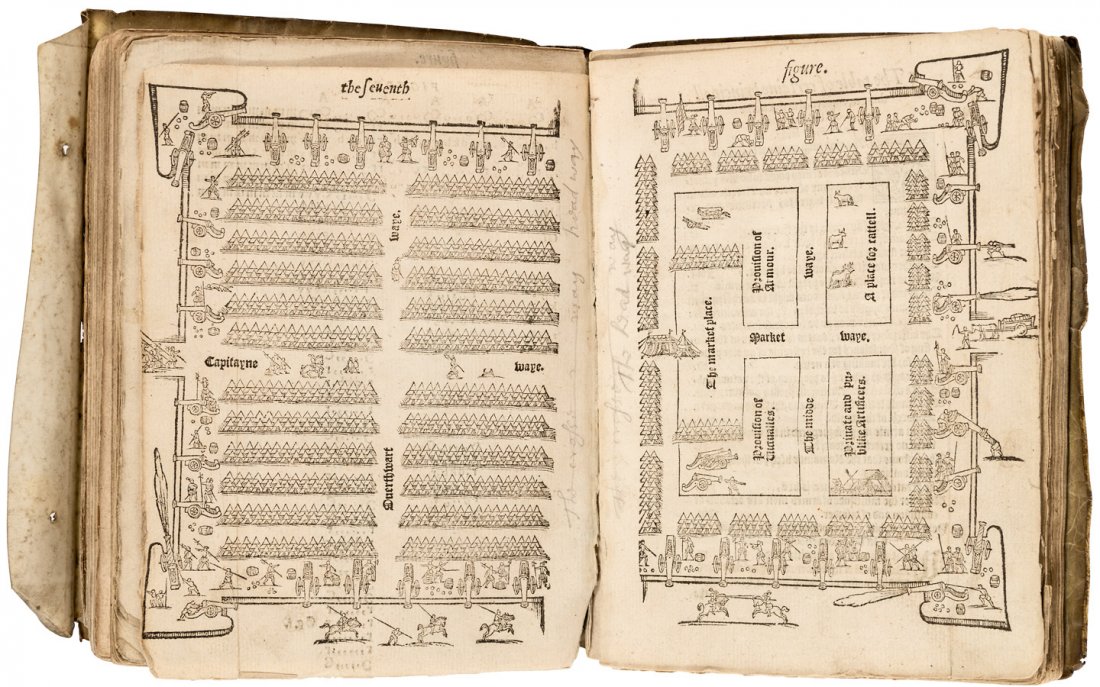 the seuenth
waye.
Capitayne
waye.
Ouerthwart
figure.
Prouision of
Armour.
waye.
A place for cattell.
The market place.
Market
waye.
Prouision of
Uictuailes.
The midde
Priuate and pu-
blike Artificers.